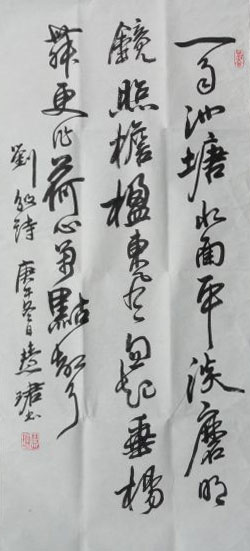 一雨池塘水面平淡磨明
鏡照檐楹東風忽起垂楊
舞更作荷心萬點聲
劉攽詩 庚午冬日慧珺書